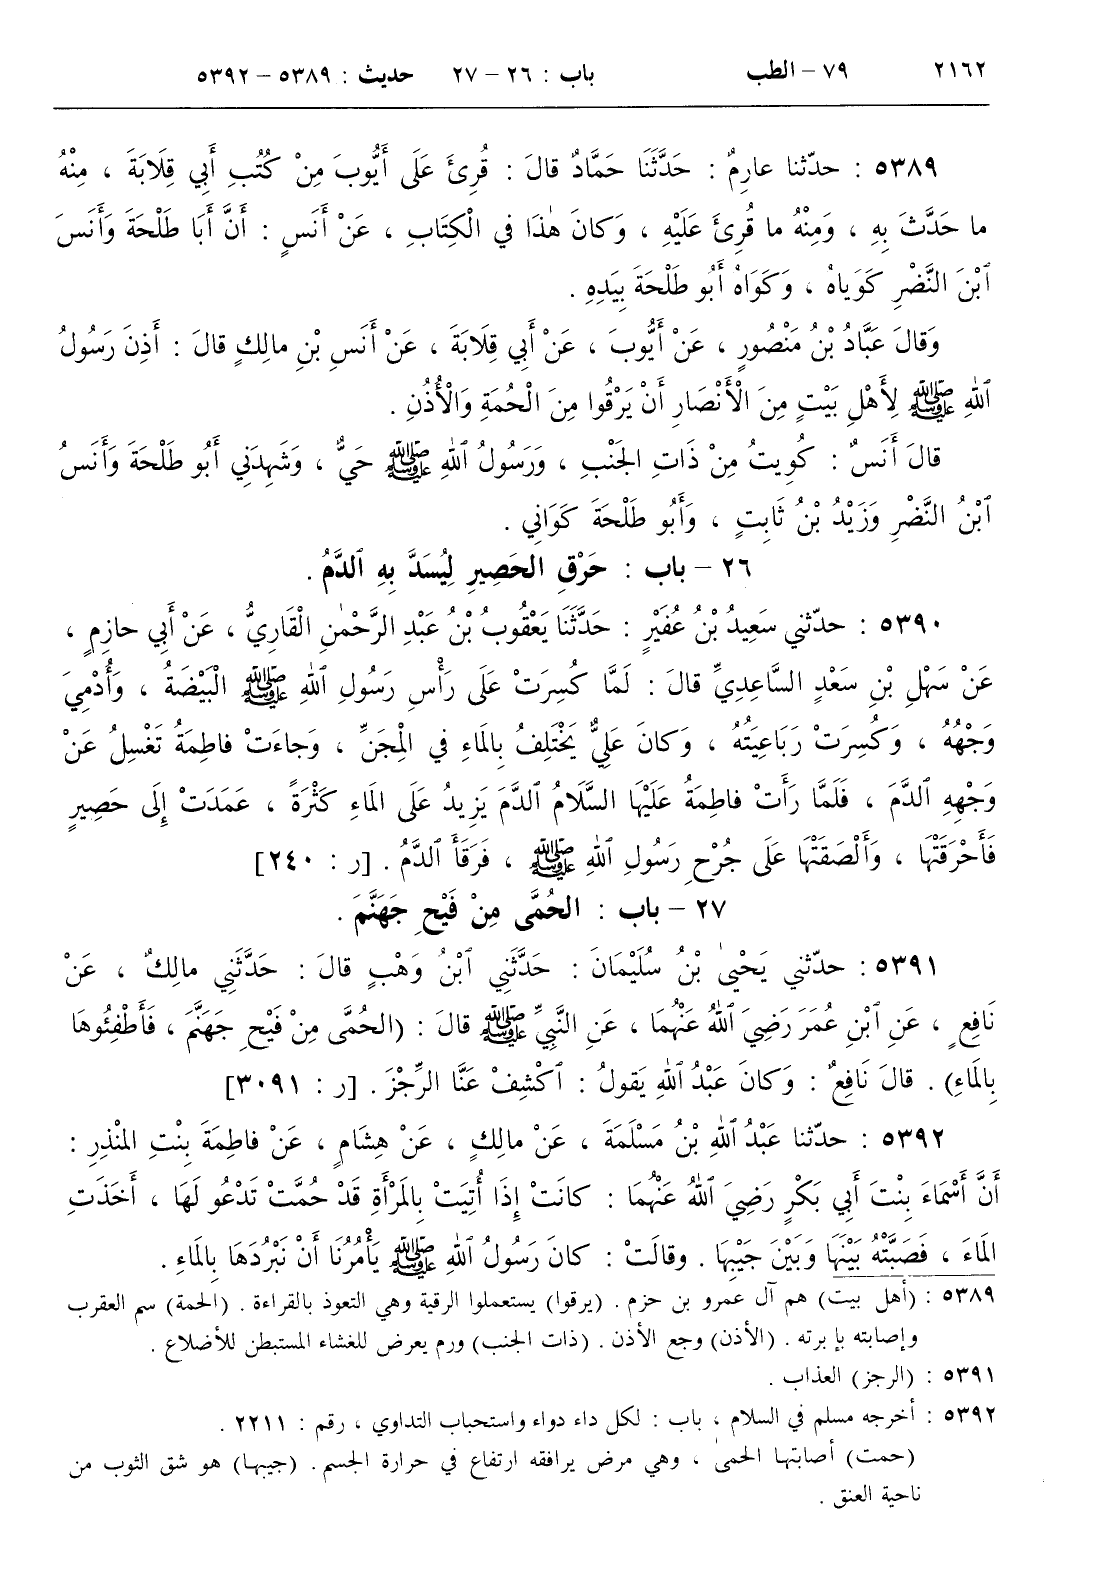 ٢١٦٢ ٧٩ - الطب باب : ٢٦ - ٢٧ حديث : ٥٣٨٩ - ٥٣٩٢
٥٣٨٩ : حدّثنا عارِمٌ : حَدَّثَنَا حَمَّادٌ قالَ : قُرِئَ عَلَى أَيُّوبَ مِنْ كُتُبِ أَبِي قِلَابَةَ ، مِنْهُ
ما حَدَّثَ بِهِ ، وَمِنْهُ ما قُرِئَ عَلَيْهِ ، وَكانَ هٰذَا فِي الْكِتَابِ ، عَنْ أَنَسٍ : أَنَّ أَبَا طَلْحَةَ وَأَنَسَ
ٱبْنَ النَّضْرِ كَوَيَاهُ ، وَكَوَاهُ أَبُو طَلْحَةَ بِيَدِهِ .
وَقالَ عَبَّادُ بْنُ مَنْصُورٍ ، عَنْ أَيُّوبَ ، عَنْ أَبِي قِلَابَةَ ، عَنْ أَنَسِ بْنِ مالِكٍ قالَ : أَذِنَ رَسُولُ
ٱللهِ ﷺ لِأَهْلِ بَيْتٍ مِنَ الْأَنْصَارِ أَنْ يَرْقُوا مِنَ الْحُمَةِ وَالْأُذُنِ .
قالَ أَنَسٌ : كُوِيتُ مِنْ ذَاتِ الجَنْبِ ، وَرَسُولُ ٱللهِ ﷺ حَيٌّ ، وَشَهِدَنِي أَبُو طَلْحَةَ وَأَنَسُ
ٱبْنُ النَّضْرِ وَزَيْدُ بْنُ ثَابِتٍ ، وَأَبُو طَلْحَةَ كَوَانِي .
٢٦ - باب : حَرْقِ الحَصِيرِ لِيُسَدَّ بِهِ ٱلدَّمُ .
٥٣٩٠ : حدّثني سَعِيدُ بْنُ عُفَيْرٍ : حَدَّثَنَا يَعْقُوبُ بْنُ عَبْدِ الرَّحْمٰنِ الْقَارِيُّ ، عَنْ أَبِي حازِمٍ ،
عَنْ سَهْلِ بْنِ سَعْدٍ السَّاعِدِيِّ قالَ : لَمَّا كُسِرَتْ عَلَى رَأْسِ رَسُولِ ٱللهِ ﷺ الْبَيْضَةُ ، وَأُدْمِيَ
وَجْهُهُ ، وَكُسِرَتْ رَبَاعِيَتُهُ ، وَكانَ عَلِيٌّ يَخْتَلِفُ بِالمَاءِ فِي الْمِجَنِّ ، وَجاءَتْ فاطِمَةُ تَغْسِلُ عَنْ
وَجْهِهِ ٱلدَّمَ ، فَلَمَّا رَأَتْ فاطِمَةُ عَلَيْهَا السَّلَامُ ٱلدَّمَ يَزِيدُ عَلَى المَاءِ كَثْرَةً ، عَمَدَتْ إِلَى حَصِيرٍ
فَأَحْرَقَتْهَا ، وَأَلْصَقَتْهَا عَلَى جُرْحِ رَسُولِ ٱللهِ ﷺ ، فَرَقَأَ ٱلدَّمُ . [ر : ٢٤٠]
٢٧ - باب : الحُمَّى مِنْ فَيْحِ جَهَنَّمَ .
٥٣٩١ : حدّثني يَحْيىٰ بْنُ سُلَيْمَانَ : حَدَّثَنِي ٱبْنُ وَهْبٍ قالَ : حَدَّثَنِي مالِكٌ ، عَنْ
نَافِعٍ ، عَنِ ٱبْنِ عُمَرَ رَضِيَ ٱللهُ عَنْهُمَا ، عَنِ النَّبِيِّ ﷺ قالَ : (الحُمَّى مِنْ فَيْحِ جَهَنَّمَ ، فَأَطْفِئُوهَا
بِالمَاءِ) . قالَ نَافِعٌ : وَكانَ عَبْدُ ٱللهِ يَقُولُ : ٱكْشِفْ عَنَّا الرِّجْزَ . [ر : ٣٠٩١]
٥٣٩٢ : حدّثنا عَبْدُ ٱللهِ بْنُ مَسْلَمَةَ ، عَنْ مالِكٍ ، عَنْ هِشَامٍ ، عَنْ فاطِمَةَ بِنْتِ المُنْذِرِ :
أَنَّ أَسْمَاءَ بِنْتَ أَبِي بَكْرٍ رَضِيَ ٱللهُ عَنْهُمَا : كانَتْ إِذَا أُتِيَتْ بِالمَرْأَةِ قَدْ حُمَّتْ تَدْعُو لَهَا ، أَخَذَتِ
المَاءَ ، فَصَبَّتْهُ بَيْنَهَا وَبَيْنَ جَيْبِهَا . وقالَتْ : كانَ رَسُولُ ٱللهِ ﷺ يَأْمُرُنَا أَنْ نَبْرُدَهَا بِالمَاءِ .
٥٣٨٩ : (أهل بيت) هم آل عمرو بن حزم . (يرقوا) يستعملوا الرقية وهي التعوذ بالقراءة . (الحمة) سم العقرب
وإصابته بإبرته . (الأذن) وجع الأذن . (ذات الجنب) ورم يعرض للغشاء المستبطن للأضلاع .
٥٣٩١ : (الرجز) العذاب .
٥٣٩٢ : أخرجه مسلم في السلام ، باب : لكل داء دواء واستحباب التداوي ، رقم : ٢٢١١ .
(حمت) أصابتها الحمىٰ ، وهي مرض يرافقه ارتفاع في حرارة الجسم . (جيبها) هو شق الثوب من
ناحية العنق .